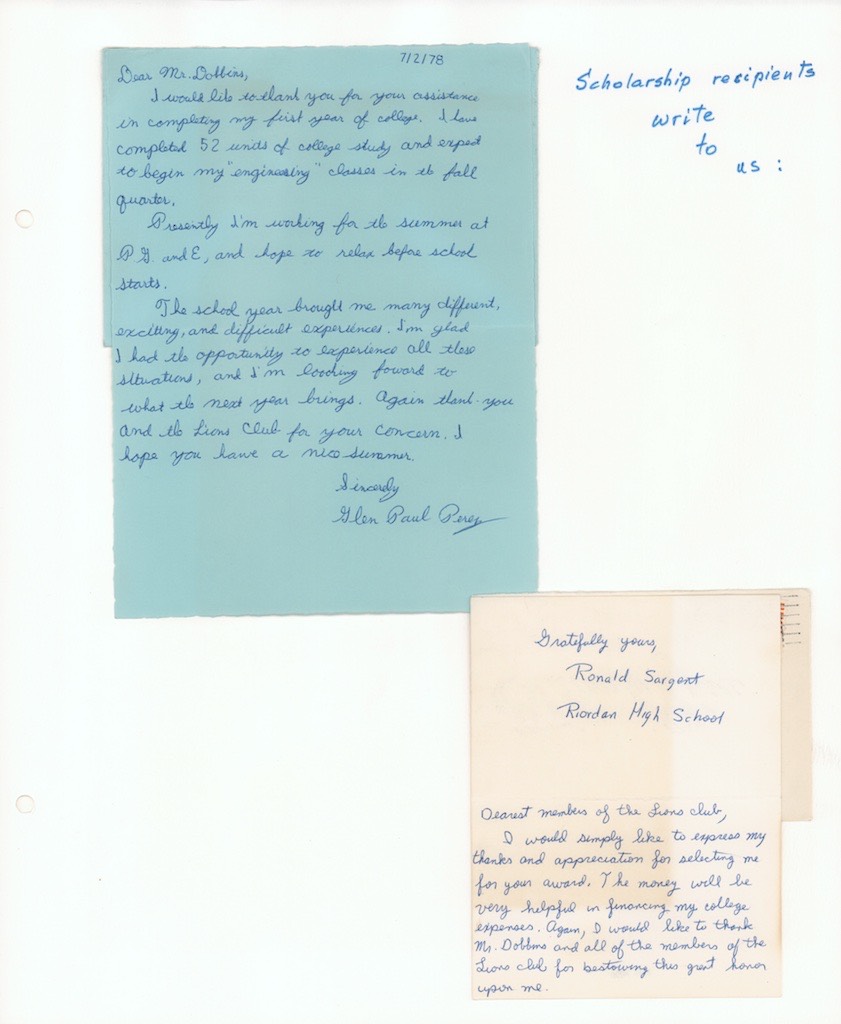 7/2/78
Dear Mr. Dobbins,
I would like to thank you for your assistance
in completing my first year of college. I have
completed 52 units of college study and expect
to begin my "engineering" classes in the fall
quarter.
Presently I'm working for the summer at
P.G. and E, and hope to relax before school
starts.
The school year brought me many different,
exciting, and difficult experiences. I'm glad
I had the opportunity to experience all these
situations, and I'm looking foward to
what the next year brings. Again thank-you
and the Lions Club for your concern. I
hope you have a nice summer.
Sincerely
Glen Paul Perez
Scholarship recipients
write
to
us :
Gratefully yours,
Ronald Sargent
Riordan High School
Dearest members of the Lions club,
I would simply like to express my
thanks and appreciation for selecting me
for your award. The money will be
very helpful in financing my college
expenses. Again, I would like to thank
Mr. Dobbins and all of the members of the
Lions club for bestowing this great honor
upon me.